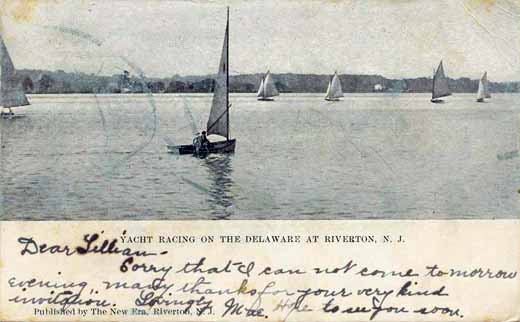 YACHT RACING ON THE DELAWARE AT RIVERTON, N. J.
Dear Lillian –
Sorry that I can not come to morrow
evening, many thanks for your very kind
invitation. Lovingly Mae. Hope to see you soon.
Published by The New Era, Riverton, N. J.